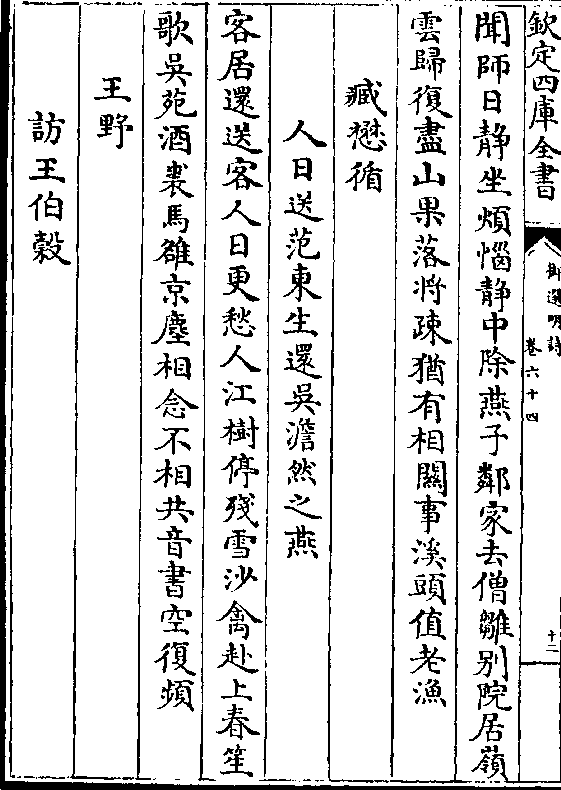 欽定四庫全書
御選明詩
卷六十四
十二
聞師日静坐煩惱静中除燕子鄰家去僧雛别院居嶺
雲歸復盡山果落將疎猶有相關事溪頭值老漁
臧懋循
人日送范東生還吳澹然之燕
客居還送客人日更愁人江樹停殘雪沙禽赴上春笙
歌吳苑酒裘馬雒京塵相念不相共音書空復頻
王野
訪王伯縠